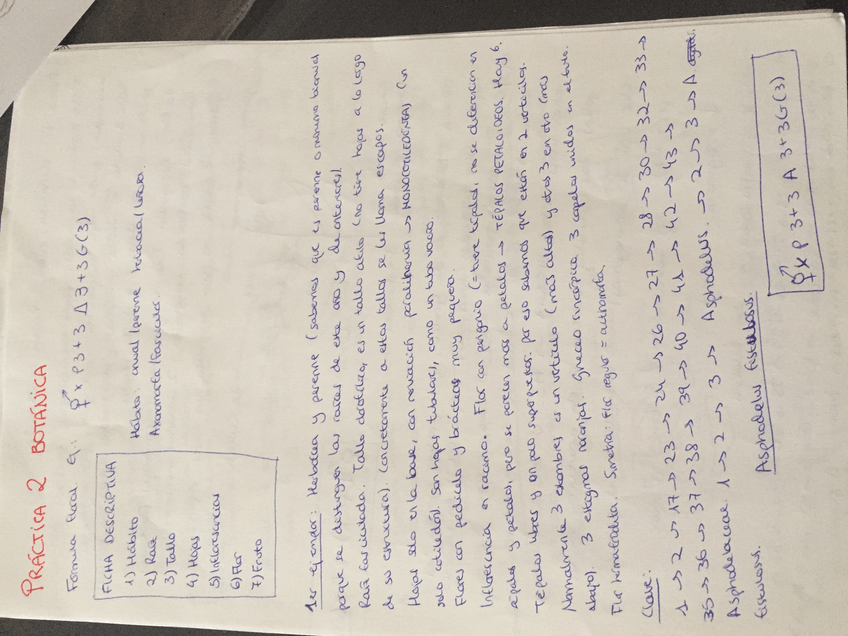 PRÁCTICA 2 BOTÁNICA
Fórmula floral. Ej.: ⚥ x P3+3 A3+3G(3)
FICHA DESCRIPTIVA
1) Hábito
2) Raíz
3) Tallo
4) Hojas
5) Inflorescencias
6) Flor
7) Fruto
Hábito: anual/perenne herbácea/leñosa.
Axonomorfa/Fasciculada.
1er ejemplar: Herbácea y perenne (sabemos que es perenne o mínimo bianual
porque se distinguen las raíces de este año y de anteriores).
Raíz fasciculada. Tallo es un tallo áfilo (no tiene hojas a lo largo
de su estructura). Concretamente a estos tallos se les llama escapos.
Hojas solo en la base, con nervación paralelinervia → MONOCOTILEDÓNEAS (un
solo cotiledón). Son hojas tubulares, como un tubo vacío.
Flores con pedículo y brácteas muy pequeñas.
Inflorescencia en racimo. Flor con perigonio (= tiene tépalos, no se diferencian en
sépalos y pétalos, pero se parecen más a pétalos → TÉPALOS PETALOIDEOS. Hay 6.
Tépalos libres y un poco superpuestos, por eso sabemos que están en 2 verticilos.
Normalmente 3 estambres en un verticilo (más altos) y otros 3 en otro (más
abajo). 3 estigmas naranjas. Gineceo sincárpico, 3 carpelos unidos en el fruto.
Flor hermafrodita. Simetría: Flor regular = actinomorfa.
Clave:
1 → 2 → 17 → 23 → 24 → 26 → 27 → 28 → 30 → 32 → 33 →
35 → 36 → 37 → 38 → 39 → 40 → 41 → 42 → 43 →
Asphodelaceae 1 → 2 → 3 → Asphodelus. → 2 → 3 → A
fistulosus.
Asphodelus fistulosus.
⚥ x P 3+3 A 3+3G(3)